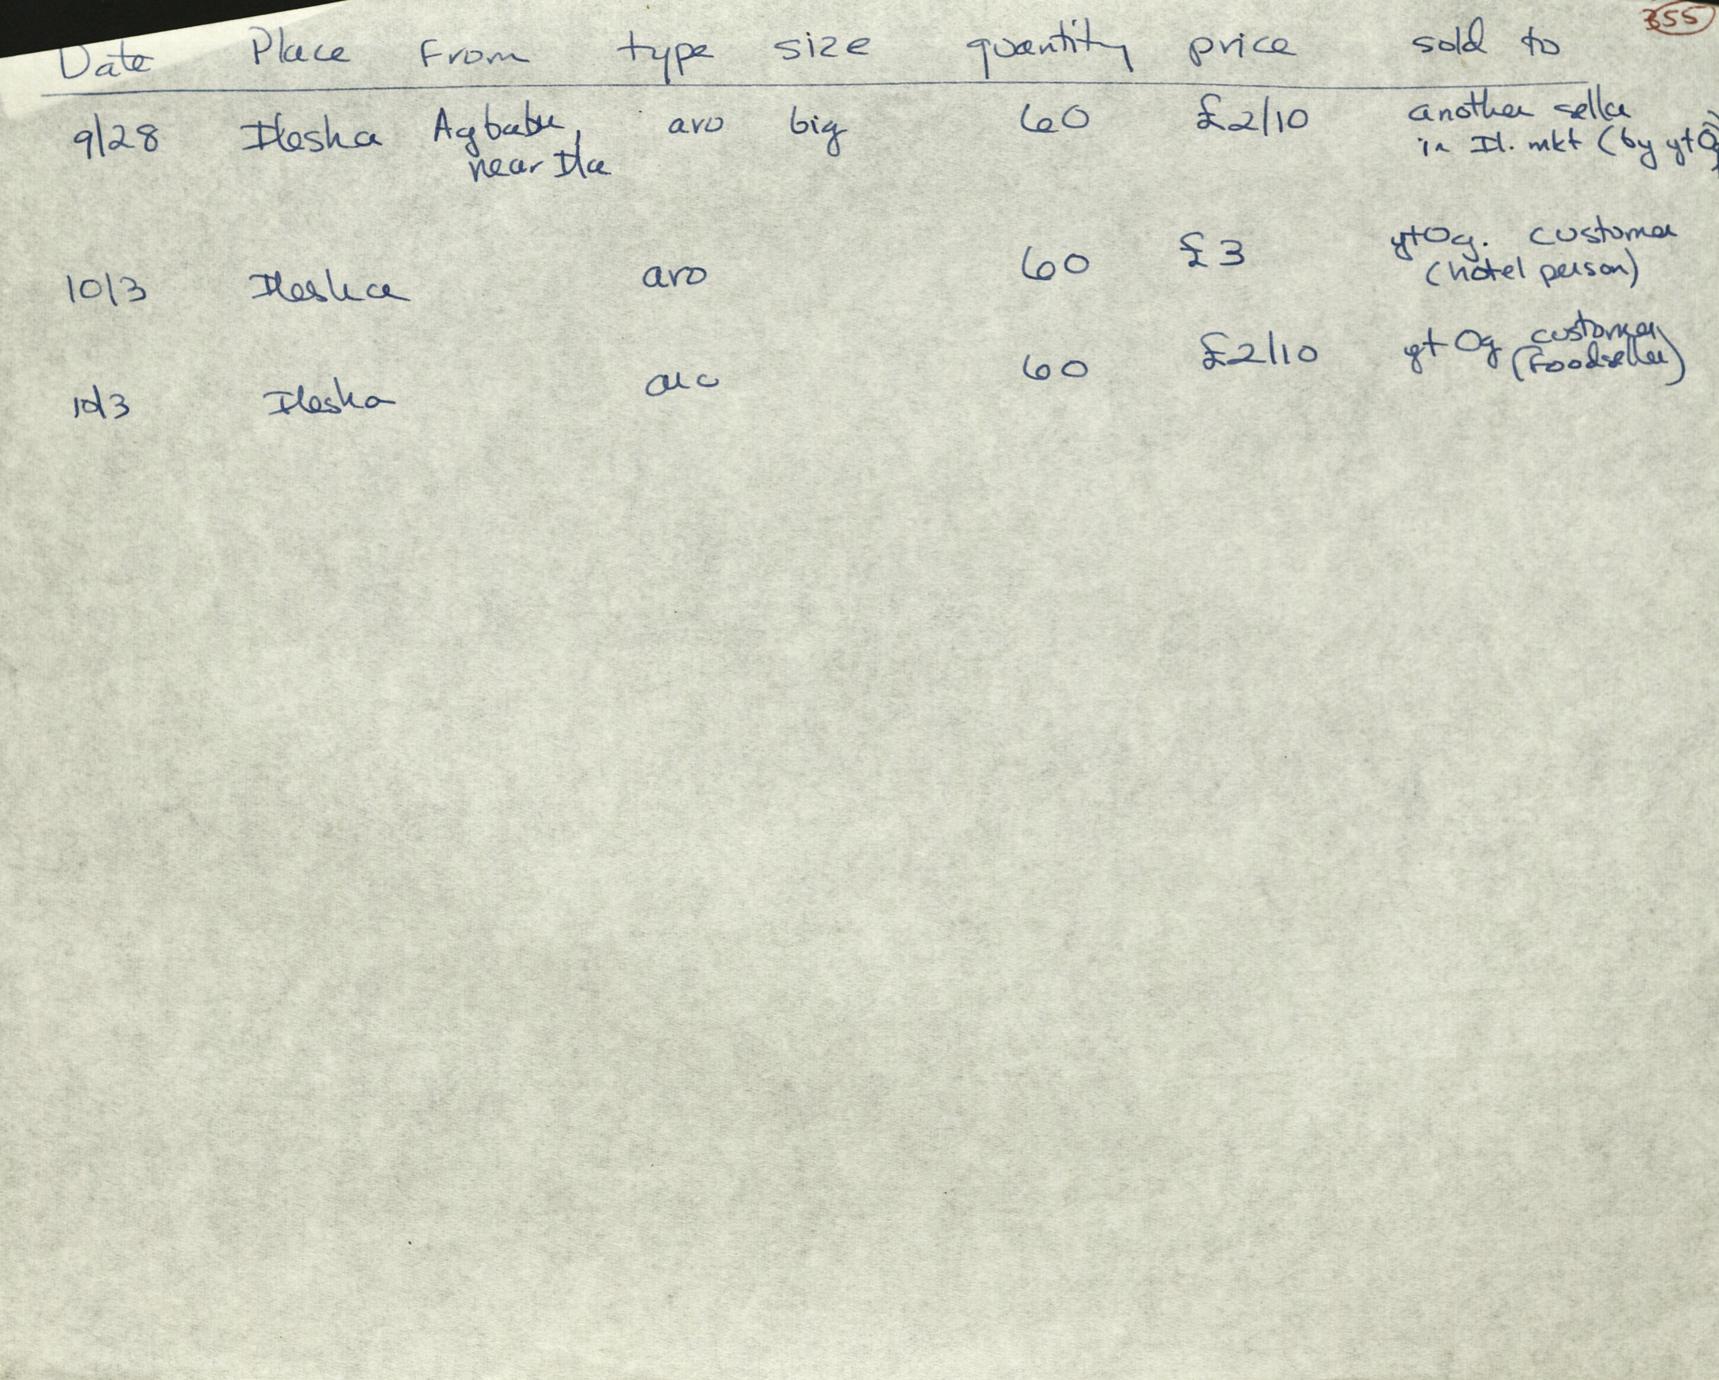 355
Date Place From type size quantity price sold to
9/28 Ilesha Agbabu, near Ila aro big 60 £2/10 another seller in Il. mkt (by yt
10/3 Ilesha aro 60 £3 yt Og. customer (hotel person)
10/3 Ilesha aro 60 £2/10 yt Og customer (Foodseller)